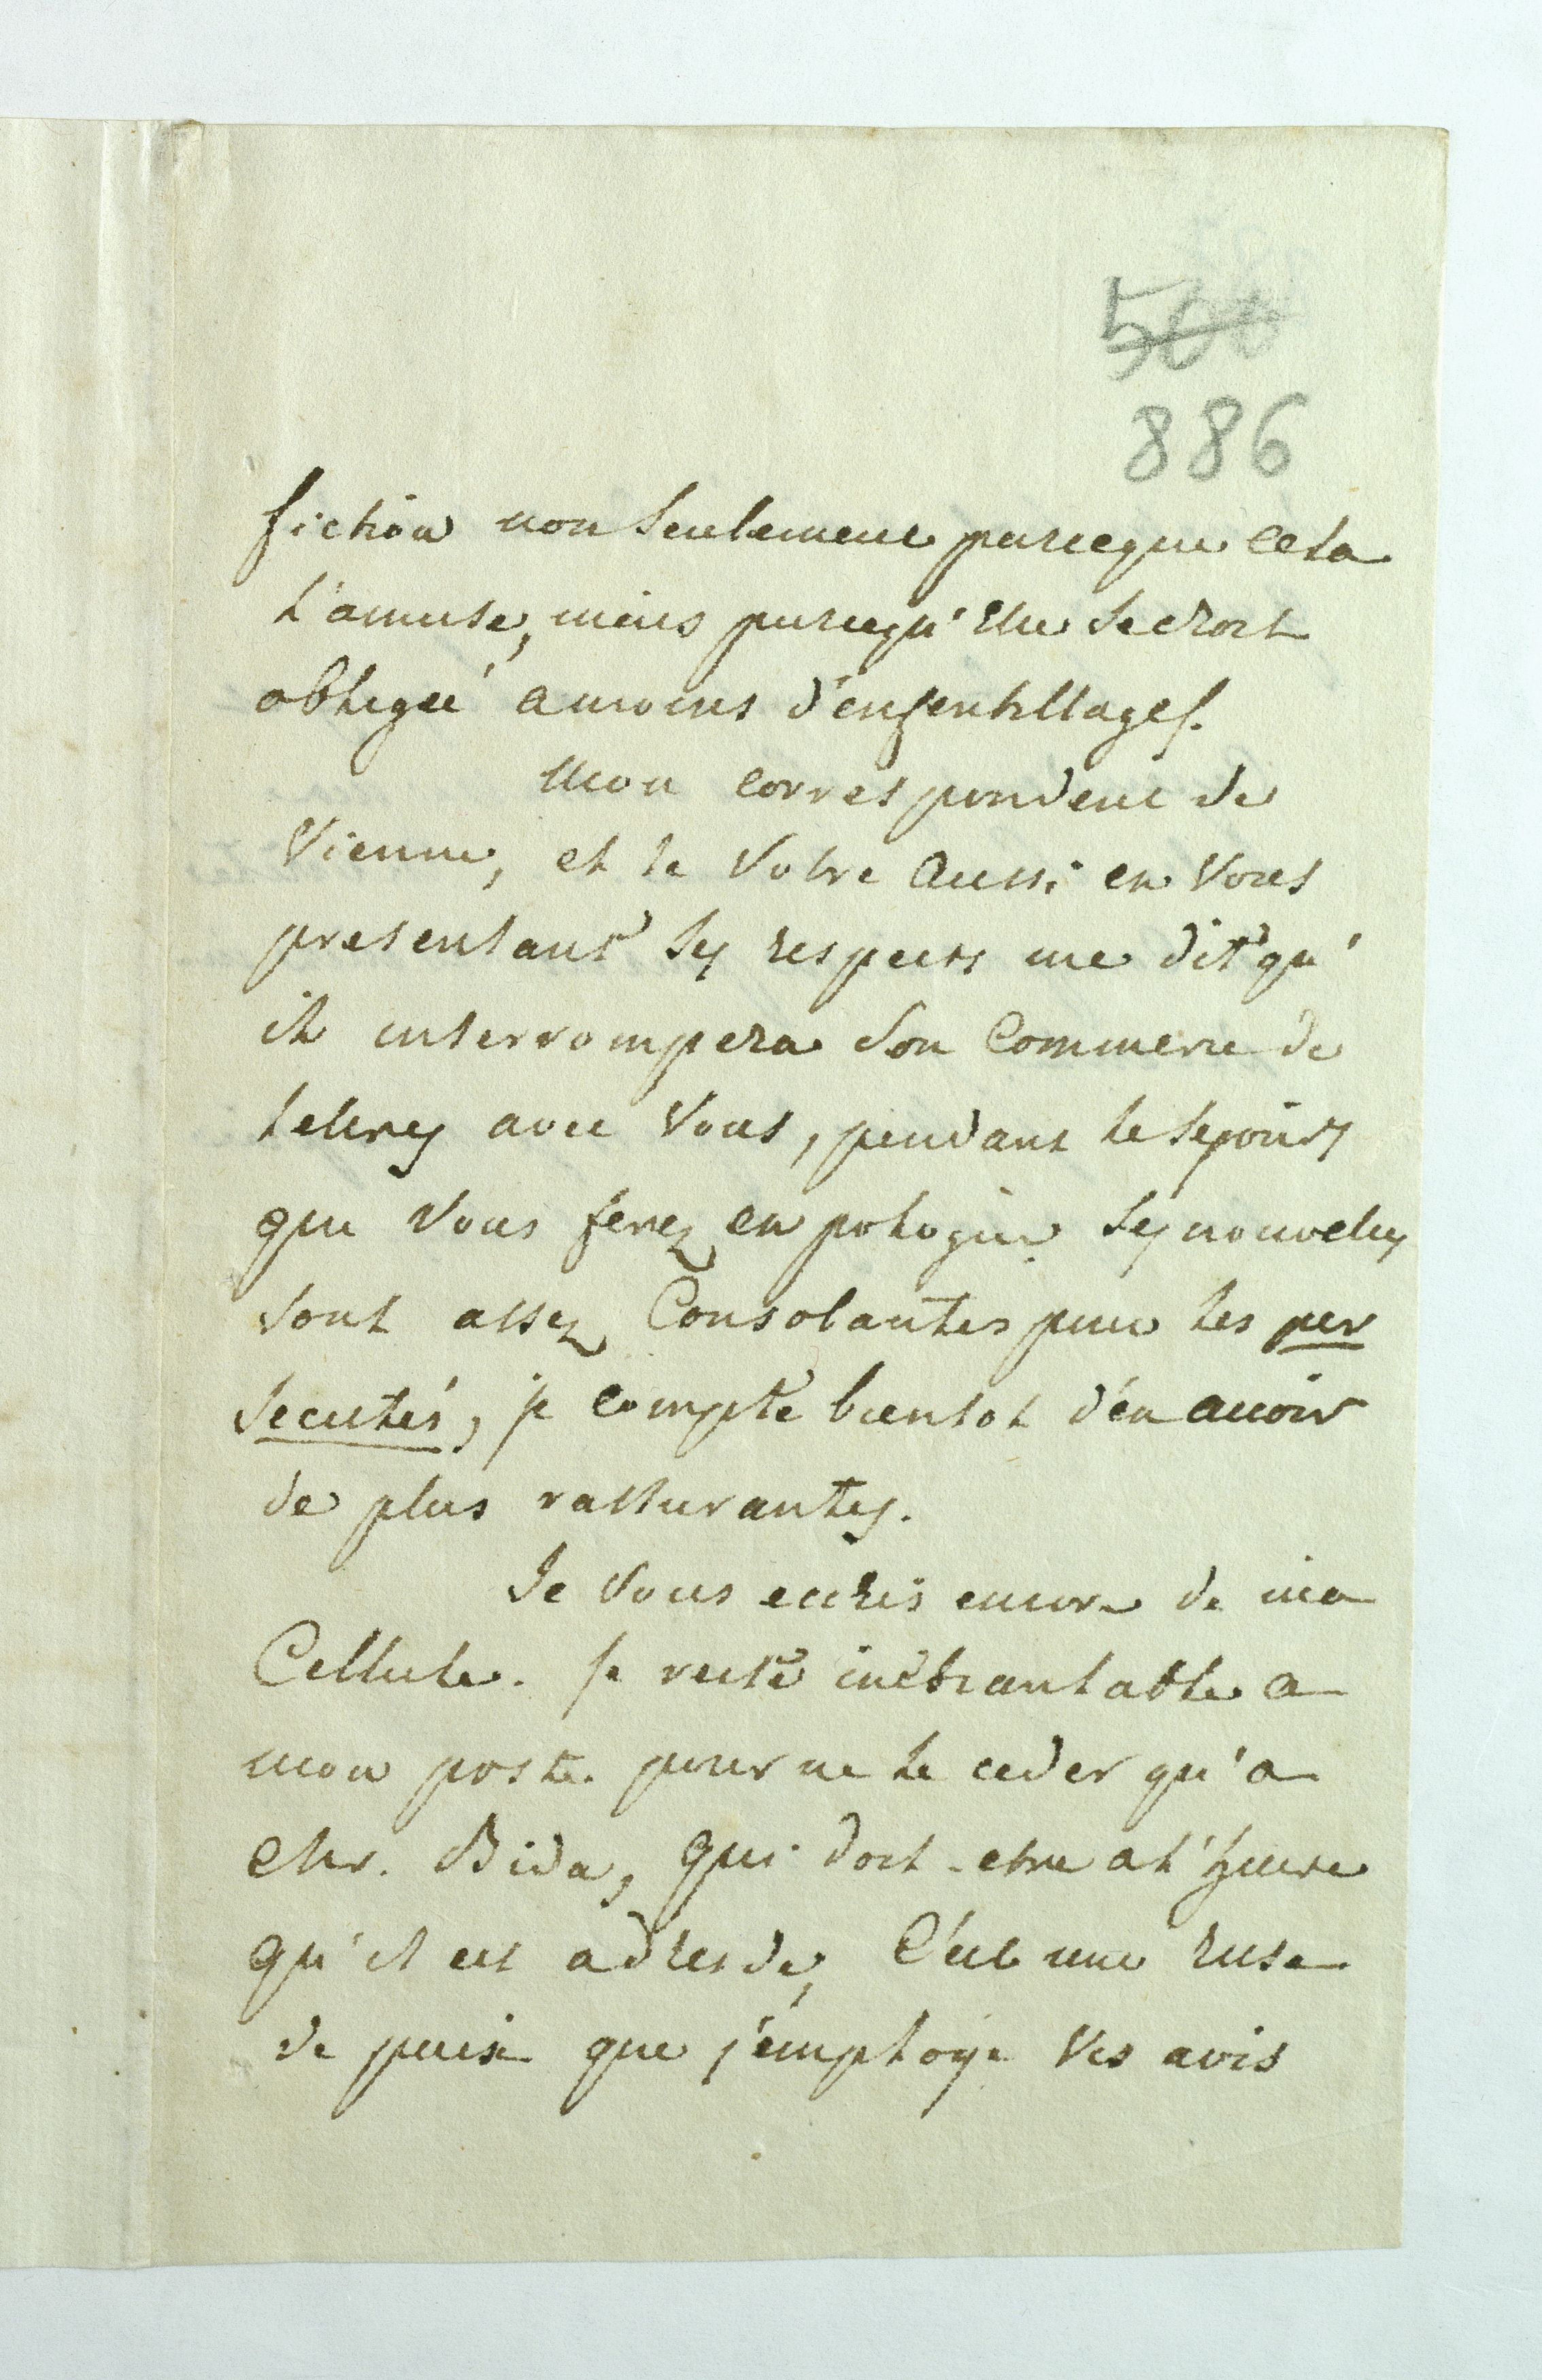 500
886
fiction non seulement parceque cela
l'amuse, mais parcequ'elle se croit
obligée a moins d'enfentillages.
Mon correspondent de
Vienne, et le Votre aussi en Vous
presentant ses respects me dit qu'
il interrompera son Commerce de
lettres avec Vous, pendant le sejour
que Vous ferez en pologne. Ses nouvelles
sont assez Consolantes pour les per
secutés, je compte bientot d'en avoir
de plus rassurantes.
Je Vous ecris encore de ma
Cellule. je reste inébranlable a
mon poste. pour ne le ceder qu'a
Bida, qui doit-etre a l'heure
qu'il est a dresde, C'est une ruse
de que j'employe Vos avis